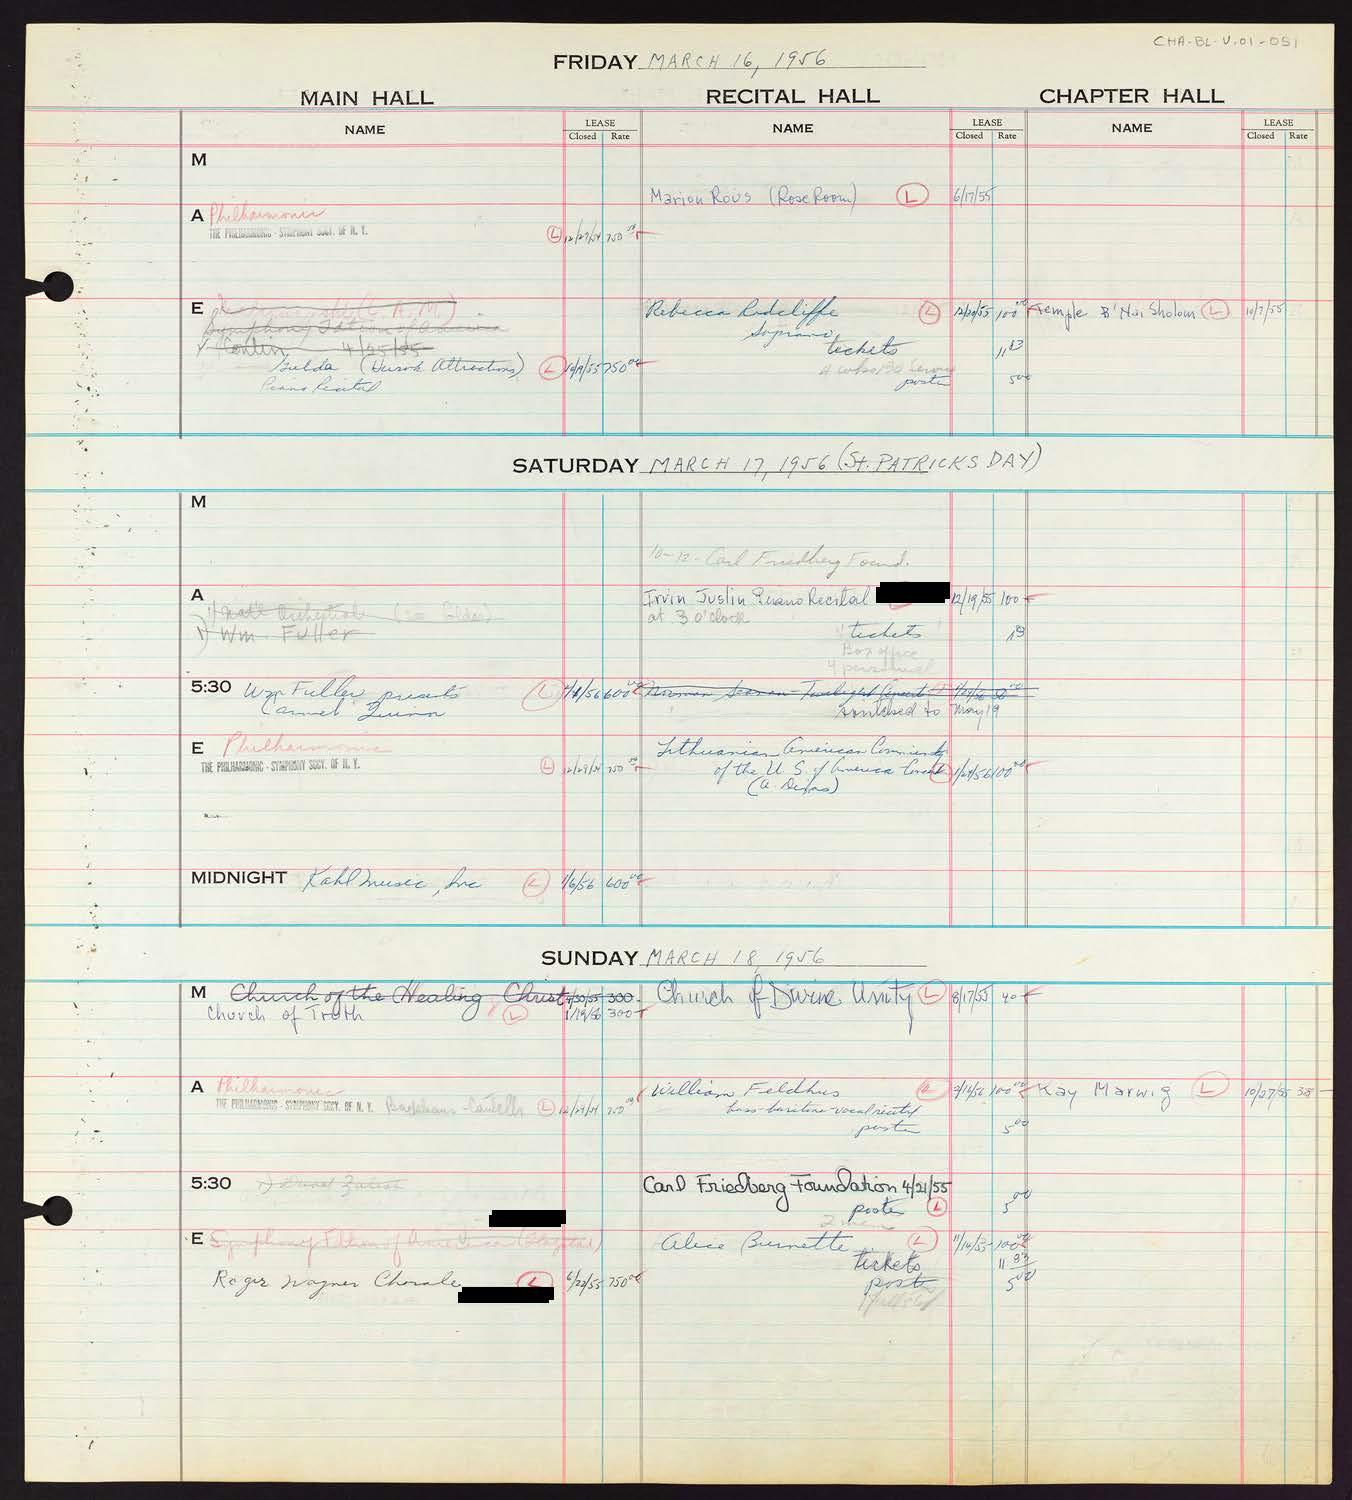 CHA-BL-V.01-051
FRIDAY MARCH 16, 1956
MAIN HALL RECITAL HALL CHAPTER HALL
NAME LEASE Closed Rate NAME LEASE Closed Rate NAME LEASE Closed Rate
M
Marion Rous (Rose Room) L 6/17/55
A Philharmonic
THE PHILHARMONIC - SYMPHONY SOCY. OF N. Y. L 12/29/54 750 00
E
Rebecca Radcliffe L 12/20/55 100 00 Temple B'Nai Sholom L 10/7/55
Soprano
4/25/55 tickets 11 83
Gulda (Hurok Attractions) L 10/19/55 750 00
Piano Recital poster 5 00
SATURDAY MARCH 17, 1956 (St. PATRICKS DAY)
M
10-12 - Carl Friedberg Found.
A Irvin Justin Piano Recital 12/19/55 100
at 3 o'clock
1) Wm. Fuller tickets
Box office
4 personnel
5:30 Wm Fuller presents L 600 00 Norman Seaman - Twilight Concert
Carmel Quinn switched to May 19
E Philharmonic Lithuanian American Community
THE PHILHARMONIC - SYMPHONY SOCY. OF N. Y. L 12/29/54 750 00 of the U. S. of America Concert L 100 00
MIDNIGHT Kahl Music, Inc L 1/6/56 600 00
SUNDAY MARCH 18, 1956
M Church of the Healing Christ 300. Church of Divine Unity L 8/17/55 40
Church of Truth L 1/19/56 300
A Philharmonic William Feldhus L 100 00 Kay Marwig L 10/27/55 35
THE PHILHARMONIC - SYMPHONY SOCY. OF N. Y. Cantelli L 12/29/54 750 00 bass-baritone-vocal recital
poster 5 00
5:30 Carl Friedberg Foundation 4/21/55
poster L 5 00
2 men
E Symphony of America Alice Burnette L 11/14/55 100 00
tickets 11 83
Roger Wagner Chorale L 6/22/55 750 00 poster 5 00